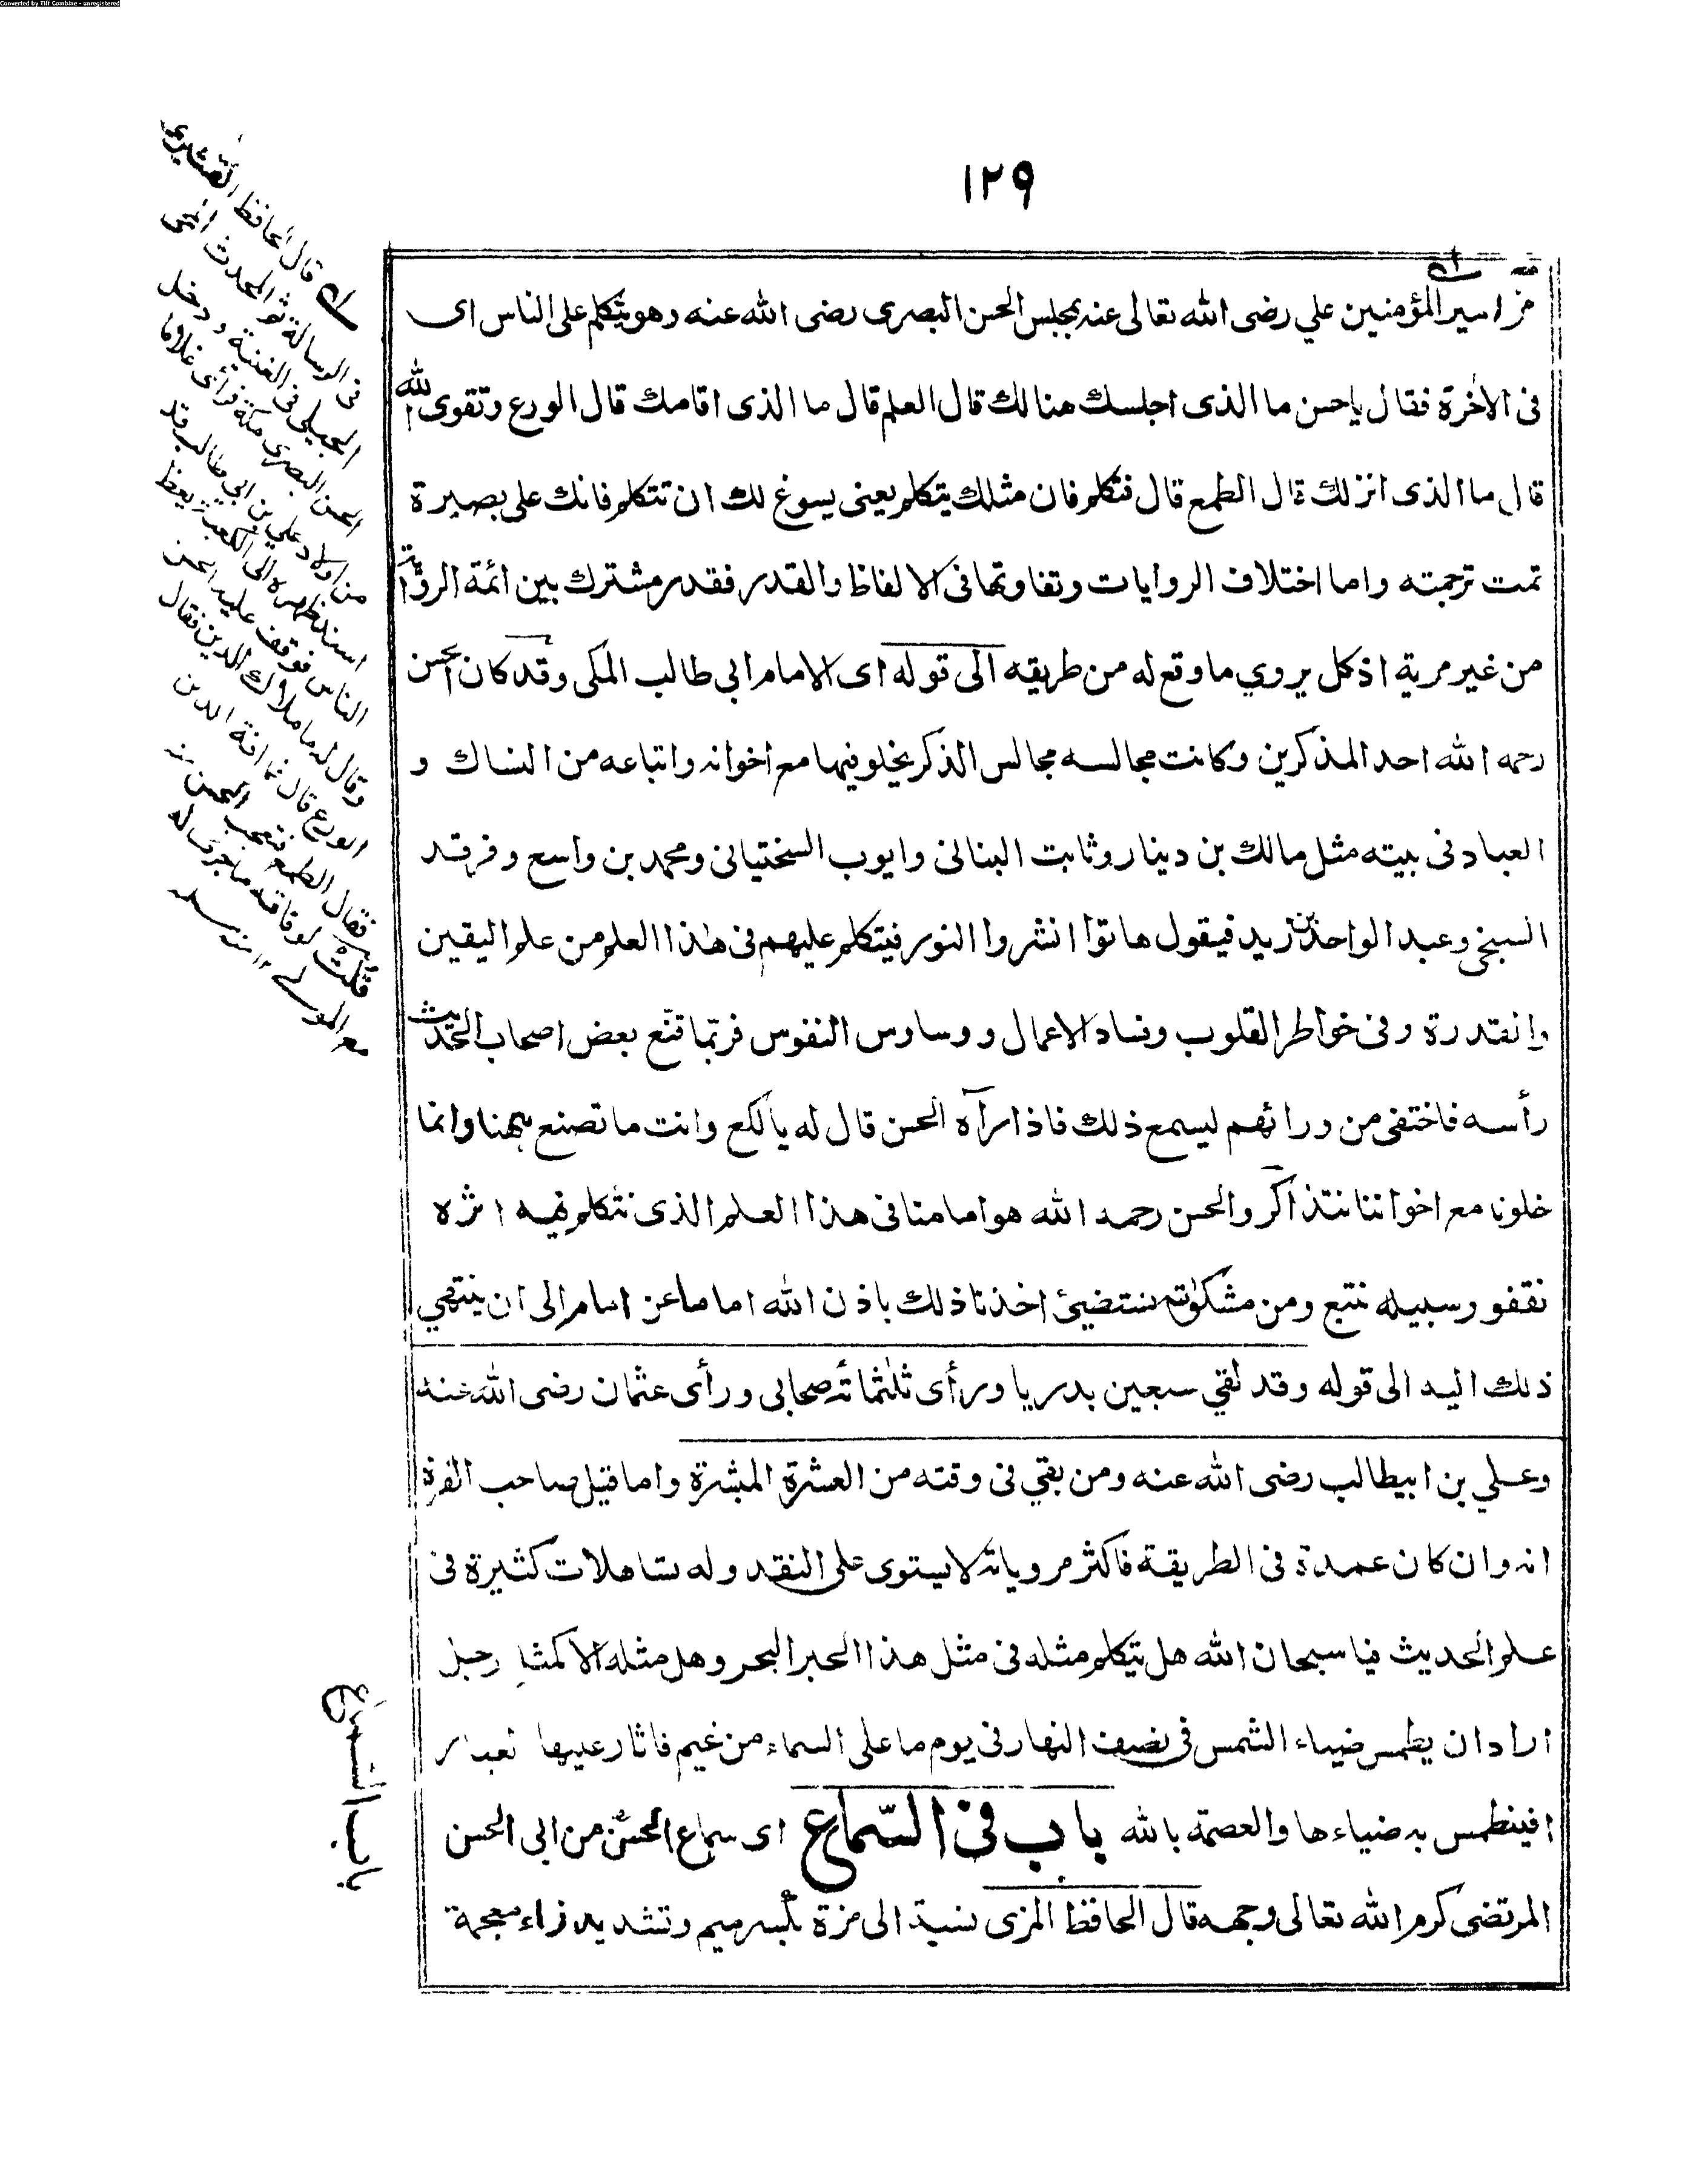 Converted by Tiff Combine - unregistered
١٢٩
مر امير المؤمنين علي رضى الله تعالى عنه بمجلس الحسن البصرى رضى الله عنه وهو يتكلم على الناس اى
فى الاخرة فقال ياحسن ما الذى اجلسك هنالك قال العلم قال ما الذى اقامك قال الورع وتقوى الله
قال ما الذى انزلك قال الطمع قال فتكلم فان مثلك يتكلم يعنى يسوغ لك ان تتكلم فانك على بصيرة
تمت ترجمته واما اختلاف الروايات وتفاوتها فى الالفاظ والقدر فقدر مشترك بين ائمة الرواية
من غير مرية اذ كل يروي ما وقع له من طريقه الى قوله اى الامام ابي طالب المكى وقد كان الحسن
رحمه الله احد المذكرين وكانت مجالسه مجالس الذكر يخلو فيها مع اخوانه واتباعه من النساك و
العباد فى بيته مثل مالك بن دينار وثابت البنانى وايوب السختيانى ومحمد بن واسع وفرقد
السبخى وعبد الواحد بن زيد فيقول هاتوا انشروا النور فيتكلم عليهم فى هذا العلم من علم اليقين
والقدرة وفى خواطر القلوب وفساد الاعمال ووساوس النفوس فربما قنّع بعض اصحاب الحديث
رأسه فاختفى من ورائهم ليسمع ذلك فاذا رآه الحسن قال له يالكع وانت ما تصنع ههنا وانما
خلونا مع اخواننا نتذاكر والحسن رحمه الله هو امامنا فى هذا العلم الذى نتكلم فيه اثره
نقفو وسبيله نتبع ومن مشكوٰته نستضيئ اخذنا ذلك باذن الله اماما عن امام الى ان ينتهي
ذلك اليه الى قوله وقد لقي سبعين بدريا ورأى ثلثمائة صحابى ورأى عثمان رضى الله عنه
وعلي بن ابيطالب رضى الله عنه ومن بقي فى وقته من العشرة المبشرة واما قيل صاحب القرة
انه وان كان عمدة فى الطريقة فاكثر مروياته لا يستوى على النقد وله تساهلات كثيرة فى
علم الحديث فيا سبحان الله هل يتكلم مثله فى مثل هذا الحبر البحر وهل مثله الا كمثل رجل
اراد ان يطمس ضياء الشمس فى نصف النهار فى يوم ما على السماء من غيم فاثار عليها
افينطمس به ضياءها والعصمة بالله باب فى السّماع اى سماع الحسن من ابى الحسن
المرتضى كرم الله تعالى وجهه قال الحافظ المزى نسبة الى مزة بكسر ميم وتشديد زاء معجمة
قال الحافظ القشيرى
فى الرسالة ثم المحدث
الجيلى فى الغنية ودخل
الحسن البصرى مكة فرأى غلاما
من اولاد علي بن ابي طالب قد
اسند ظهره الى الكعبة يعظ
الناس فوقف عليه الحسن
وقال له ما ملاك الدين فقال
الورع قال فما افة الدين
فقال الطمع فتعجب الحسن منه
قلت
باب السماع